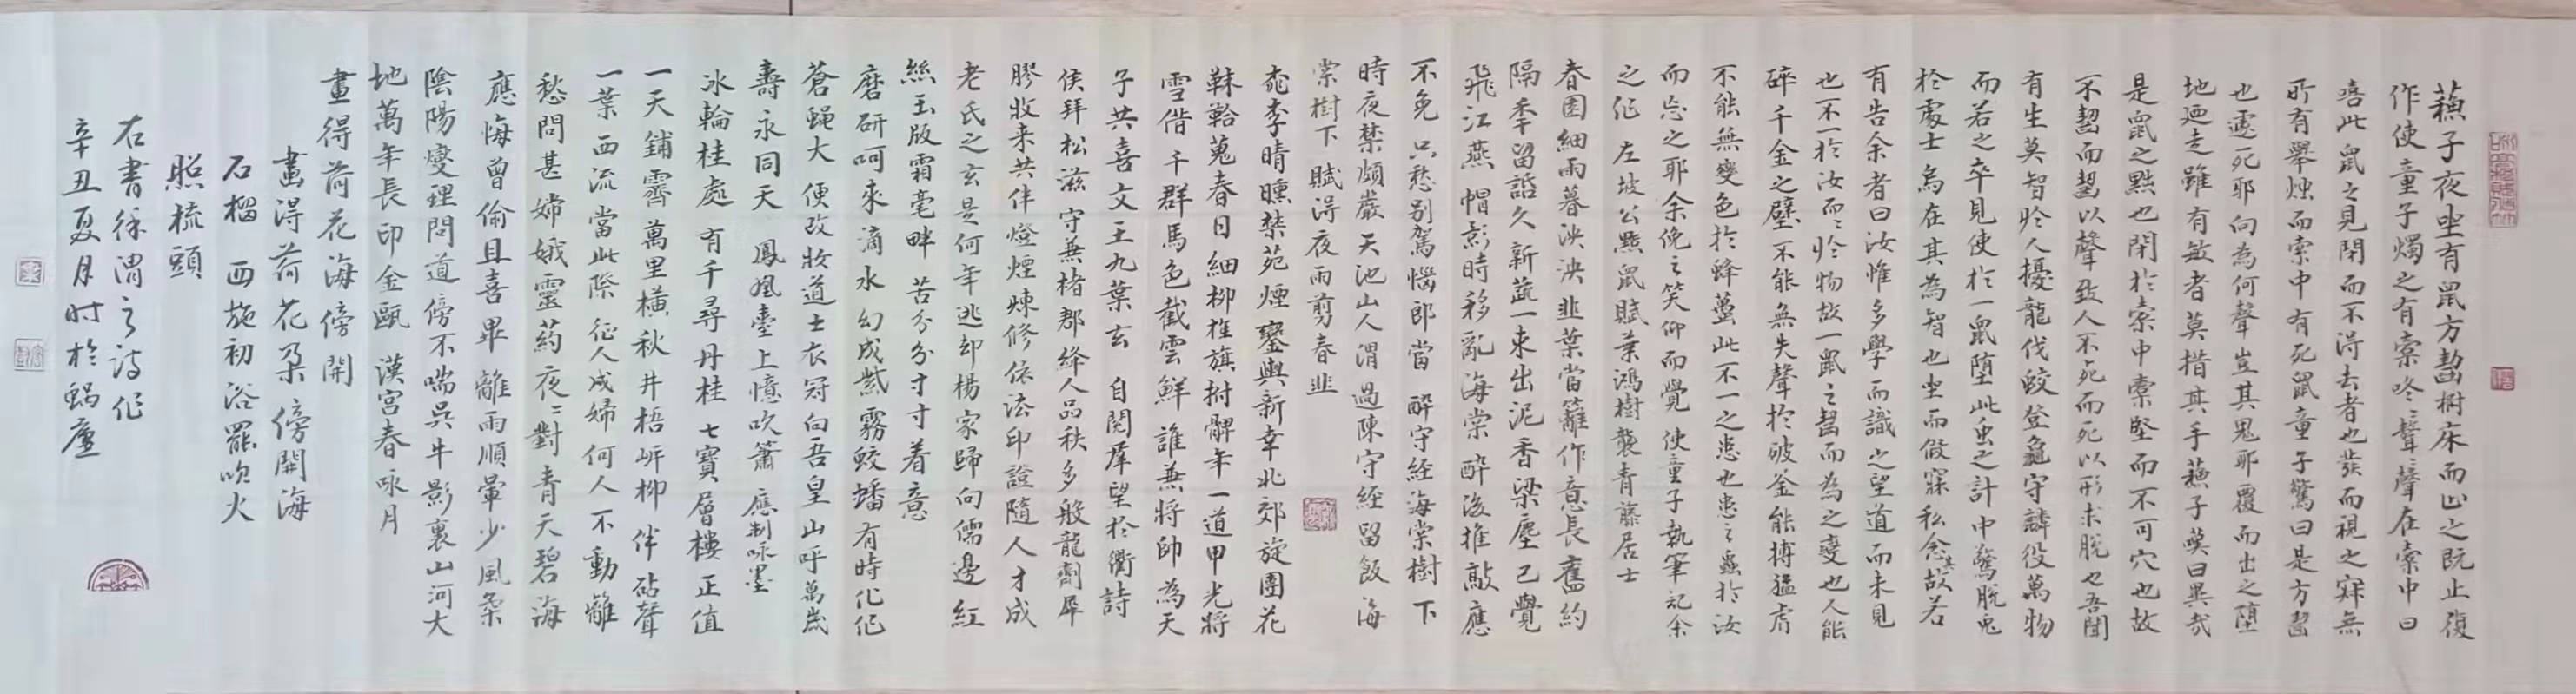 蘓子夜坐有鼠方齧拊床而止之既止復
作使童子燭之有橐咚〻聲聲在橐中曰
嘻此鼠之見閉而不得去者也發而視之寂無
所有舉烛而索中有死鼠童子驚曰是方齧
也遽死耶向為何聲豈其鬼耶覆而出之墮
地廼走雖有敏者莫措其手蘓子嘆曰異哉
是鼠之黠也閉於橐中橐堅而不可穴也故
不齧而齧以聲致人不死而死以形求脫也吾聞
有生莫智於人擾龍伐蛟登龜守麟役萬物
而若之卒見使於一鼠堕此虫之計中驚脫兎
於處女烏在其為智也坐而假寐私念其故若
有告余者曰汝惟多學而識之望道而未見
也不一於汝而二於物故一鼠之齧而為之變也人能
碎千金之璧不能無失聲於破釜能搏猛虎
不能無變色於蜂蠆此不一之患也患之蟲於汝
而忘之耶余俛之笑仰而覺使童子執筆記余
之作 左坡公黠鼠賦葉鴻樹襲青藤居士
春園細雨暮泱泱韭葉當籬作意長舊約
隔年留話久新蔬一束出泥香梁塵已覺
飛江燕帽影時移亂海棠醉後推敲應
不免只愁别駕惱郎當 醉守経海棠樹下
時夜禁頗嚴天池山人渭過陳守経留飯海
棠樹下賦得夜雨剪春韭
桃李晴曛禁苑煙鑾輿新幸北郊旋團花
韎韐蒐春日細柳樁旗拊髀年一道甲光將
雪借千群馬色截雲鮮誰無將帥為天
子共喜文王九葉玄 自閱羣望於衢詩
侯拜松滋守無楮郡絳人品秩多般龍劑犀
膠收来共伴燈煙煉修依法印證隨人才成
老氏之玄是何年逃却楊家歸向儒邊紅
絲玉版霜毫畔 苦分分寸寸着意
磨研呵來滴水幻成紫霧蛟蟠有時化作
蒼蝿大便改妝道士衣冠向吾皇山呼萬歲
壽永同天 鳳凰臺上憶吹簫 應制咏墨
冰輪桂處有千尋丹桂七寶層樓正值
一天鋪霽萬里橫秋井梧岍柳伴砧聲
一葉西流當此際征人成婦何人不動離
愁問甚嫦娥靈葯夜〻對青天碧海
應悔曾偷且喜畢離雨順暈少風柔
陰陽燮理問道傍不喘吳牛影裏山河大
地萬年長印金甌 漢宫春咏月
畫得荷花海傍開
畫得荷花朶傍開海
石榴 西施初浴罷吹火
照梳頭
右書徐渭之詩作
辛丑夏月时於蝸廬